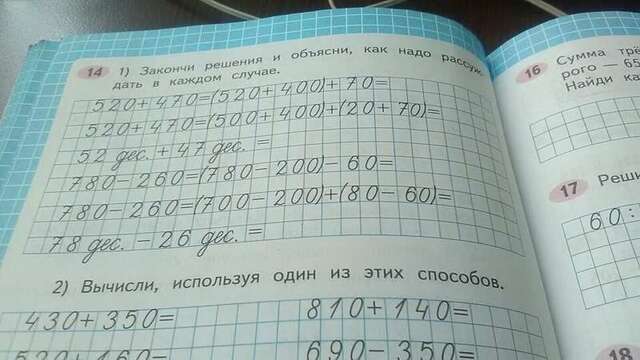 14 1) Закончи решения и объясни, как надо рассуж-
дать в каждом случае.
520+470=(520+400)+70=
520+470=(500+400)+(20+70)=
52 дес.+47 дес. =
780-260=(780-200)-60=
780-260=(700-200)+(80-60)=
78 дес. - 26 дес. =
2) Вычисли, используя один из этих способов.
430+350=
810+140=
530+160=
690-350=
16 Сумма трё
рого — 65
Найди ка
17 Реши
60:
18